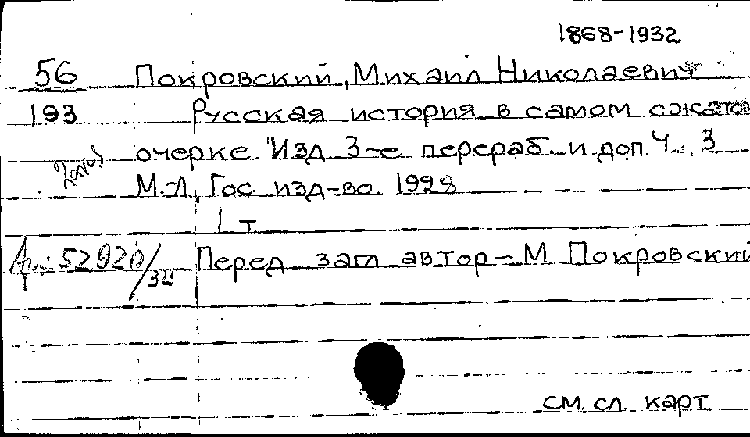 1868-1932
56 Покровский, Михаил Николаевич
193 Русская история в самом сжатом
очерке. Изд 3-е перераб. и доп. Ч. 3
М.-Л, Гос изд-во. 1928
1 т
52920/34 Перед загл автор - М Покровский
см. сл. карт